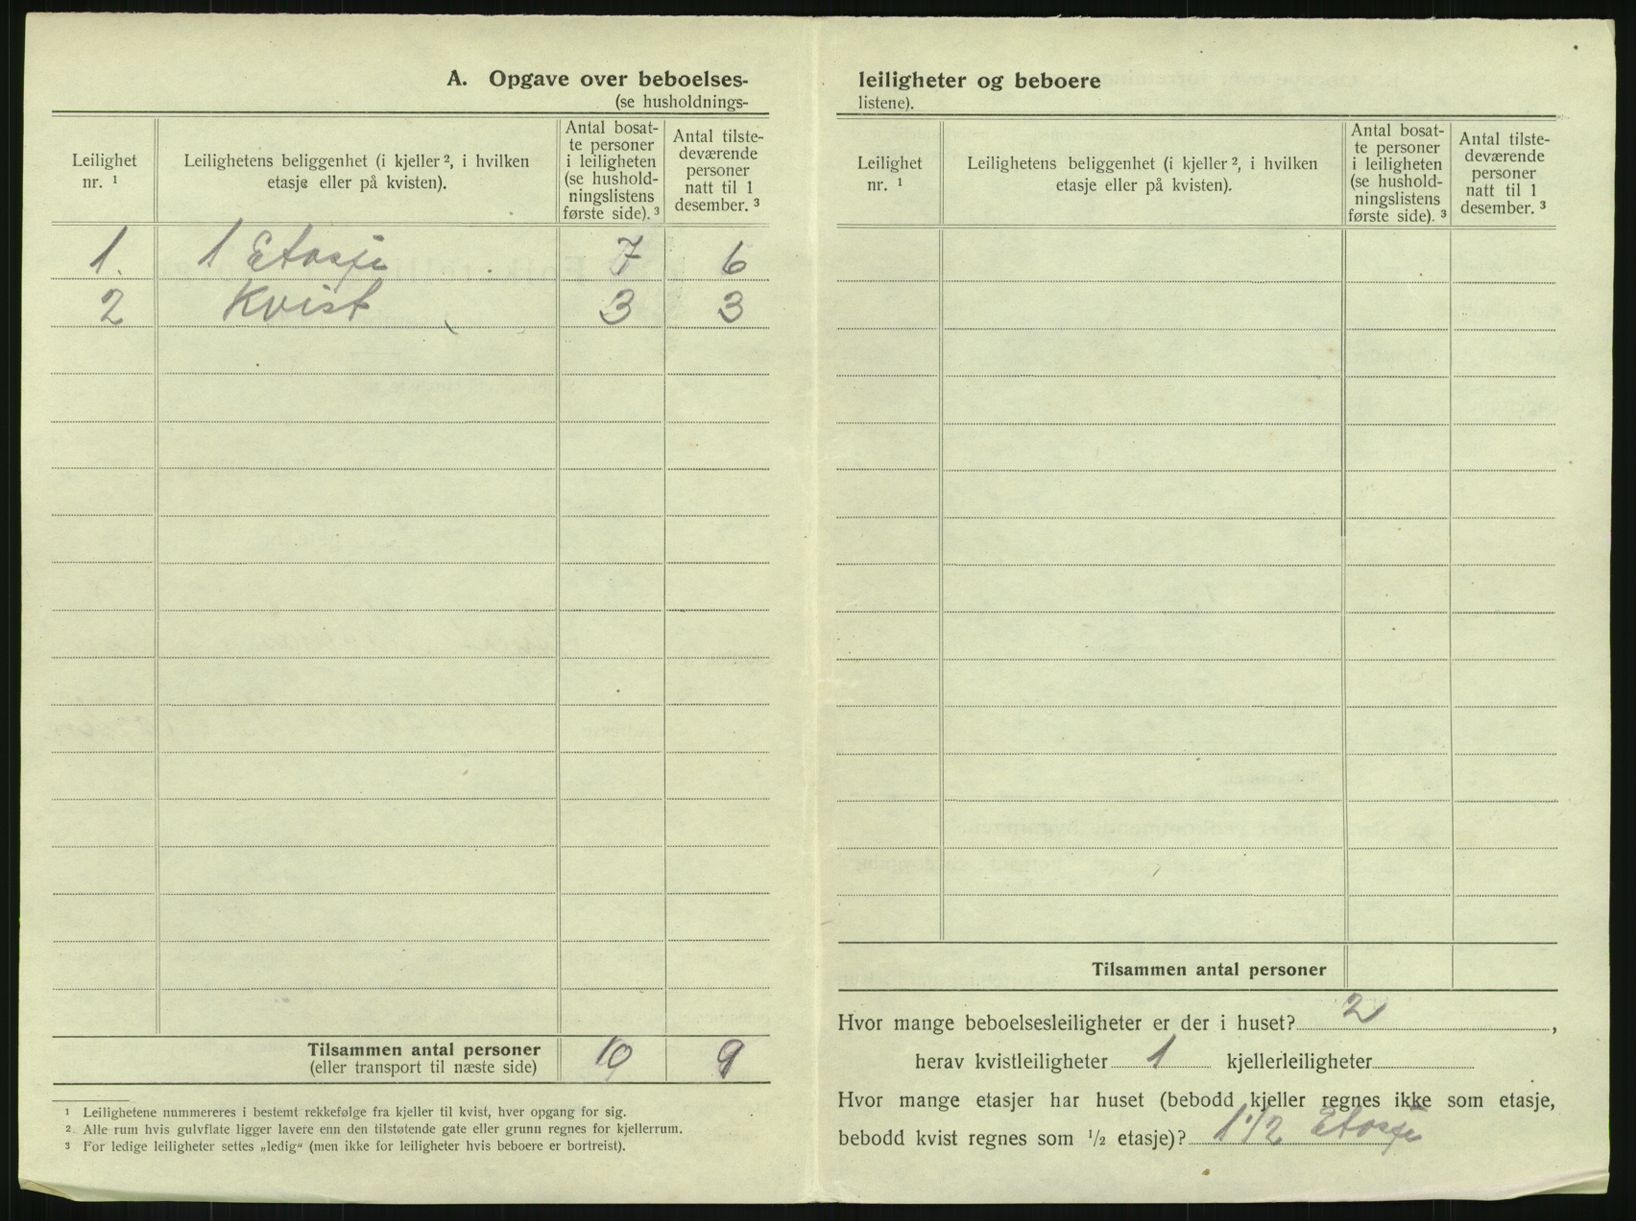 A. Opgave over beboelses-
(se husholdnings-
Leilighet nr. ¹
Leilighetens beliggenhet (i kjeller ², i hvilken etasje eller på kvisten).
Antal bosat-
te personer
i leiligheten
(se hushold-
ningslistens
første side). ³
Antal tilste-
deværende
personer
natt til 1
desember. ³
1. 1 Etasje 7 6
2 Kvist 3 3
Tilsammen antal personer 10 9
(eller transport til næste side)
¹ Leilighetene nummereres i bestemt rekkefølge fra kjeller til kvist, hver opgang for sig.
² Alle rum hvis gulvflate ligger lavere enn den tilstøtende gate eller grunn regnes for kjellerrum.
³ For ledige leiligheter settes „ledig“ (men ikke for leiligheter hvis beboere er bortreist).
leiligheter og beboere
listene).
Leilighet nr. ¹
Leilighetens beliggenhet (i kjeller ², i hvilken etasje eller på kvisten).
Antal bosat-
te personer
i leiligheten
(se hushold-
ningslistens
første side). ³
Antal tilste-
deværende
personer
natt til 1
desember. ³
Tilsammen antal personer
Hvor mange beboelsesleiligheter er der i huset? 2 ,
herav kvistleiligheter 1 kjellerleiligheter
Hvor mange etasjer har huset (bebodd kjeller regnes ikke som etasje,
bebodd kvist regnes som ½ etasje)? 1 1/2 Etasje